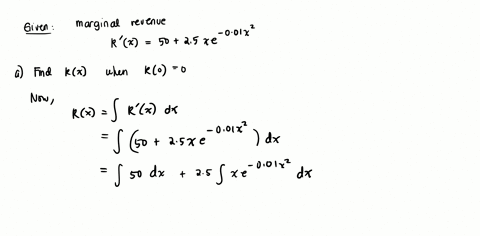 Given: marginal revenue
R'(x) = 50 + 2.5 x e^{-0.01x^2}
a) Find R(x) when R(0) = 0
Now,
R(x) = ∫ R'(x) dx
= ∫ (50 + 2.5x e^{-0.01x^2}) dx
= ∫ 50 dx + 2.5 ∫ x e^{-0.01x^2} dx